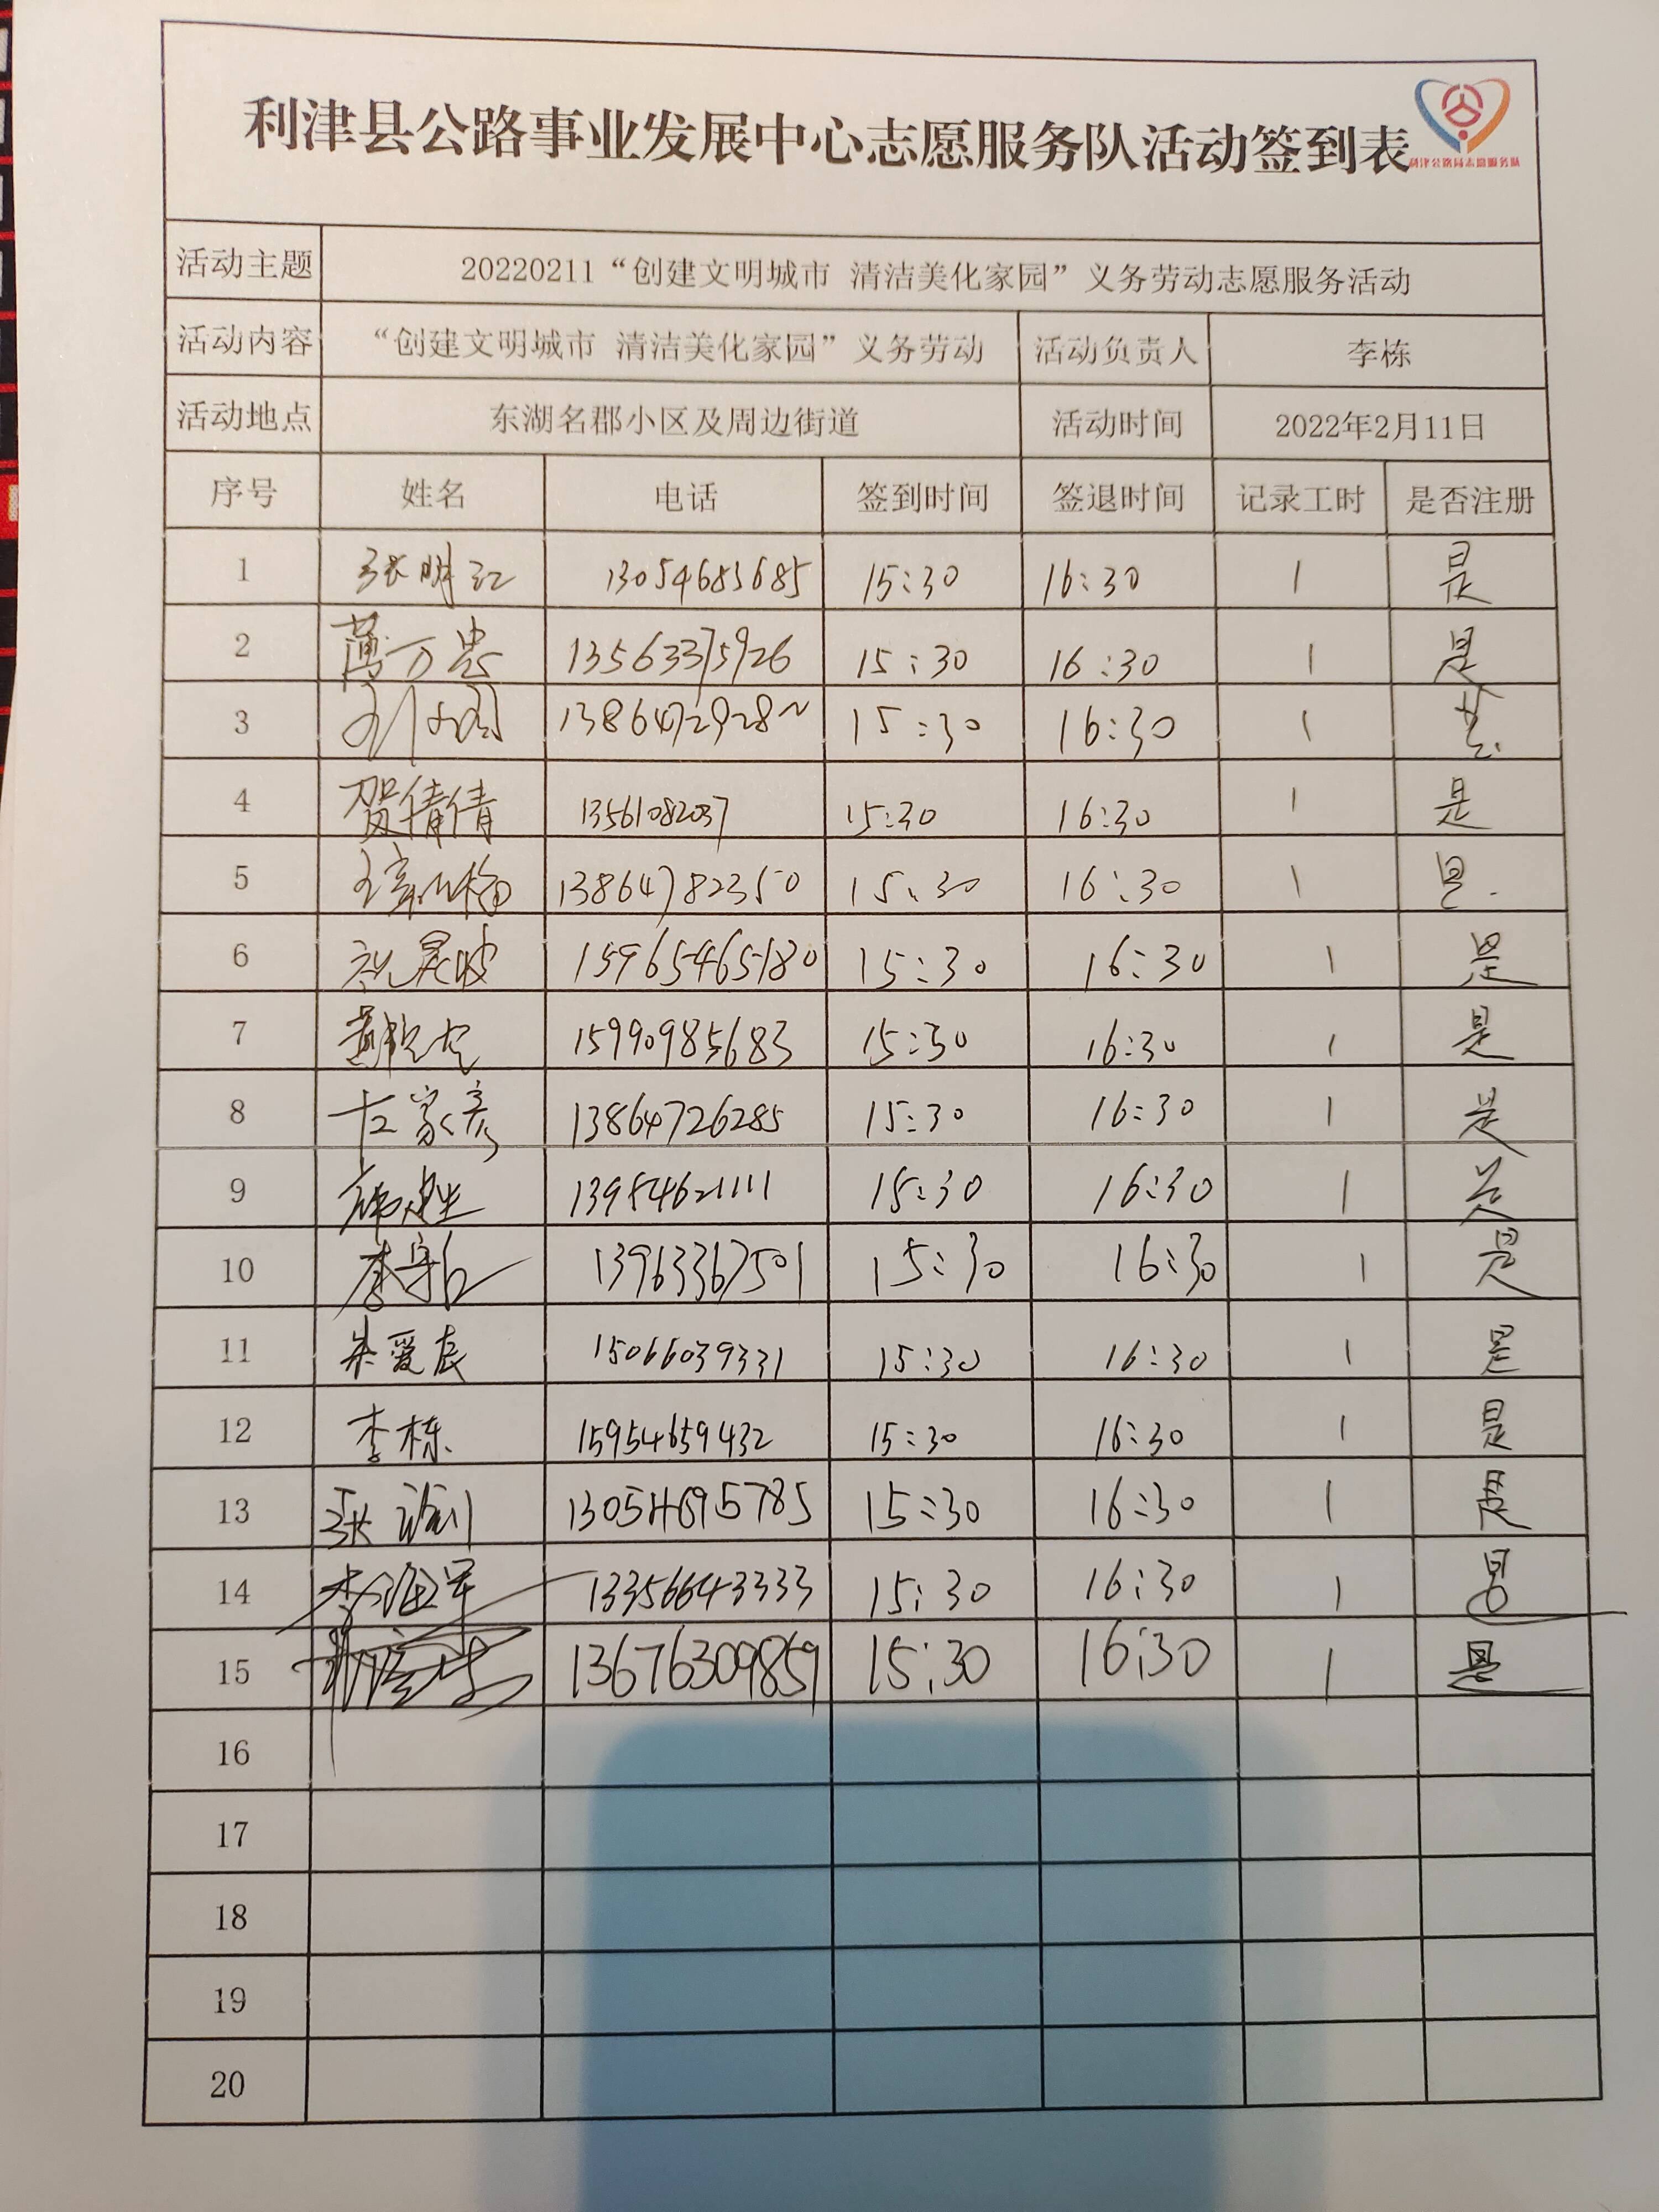 利津县公路事业发展中心志愿服务队活动签到表
利津公路局志愿服务队
活动主题 20220211“创建文明城市 清洁美化家园”义务劳动志愿服务活动
活动内容 “创建文明城市 清洁美化家园”义务劳动 活动负责人 李栋
活动地点 东湖名郡小区及周边街道 活动时间 2022年2月11日
序号 姓名 电话 签到时间 签退时间 记录工时 是否注册
1 张明江 13054685685 15:30 16:30 1 是
2 薄万忠 13563375926 15:30 16:30 1 是
3 15:30 16:30 1 是
4 贺倩倩 13561082037 15:30 16:30 1 是
5 13864782350 15:30 16:30 1 是.
6 15965465180 15:30 16:30 1 是
7 15990985683 15:30 16:30 1 是
8 13864726285 15:30 16:30 1 是
9 13954621111 15:30 16:30 1 是
10 13963367501 15:30 16:30 1 是
11 朱爱辰 15066039331 15:30 16:30 1 是
12 李栋 15954659432 15:30 16:30 1 是
13 13054695785 15:30 16:30 1 是
14 13356643333 15:30 16:30 1 是
15 13676309859 15:30 16:30 1 是
16
17
18
19
20